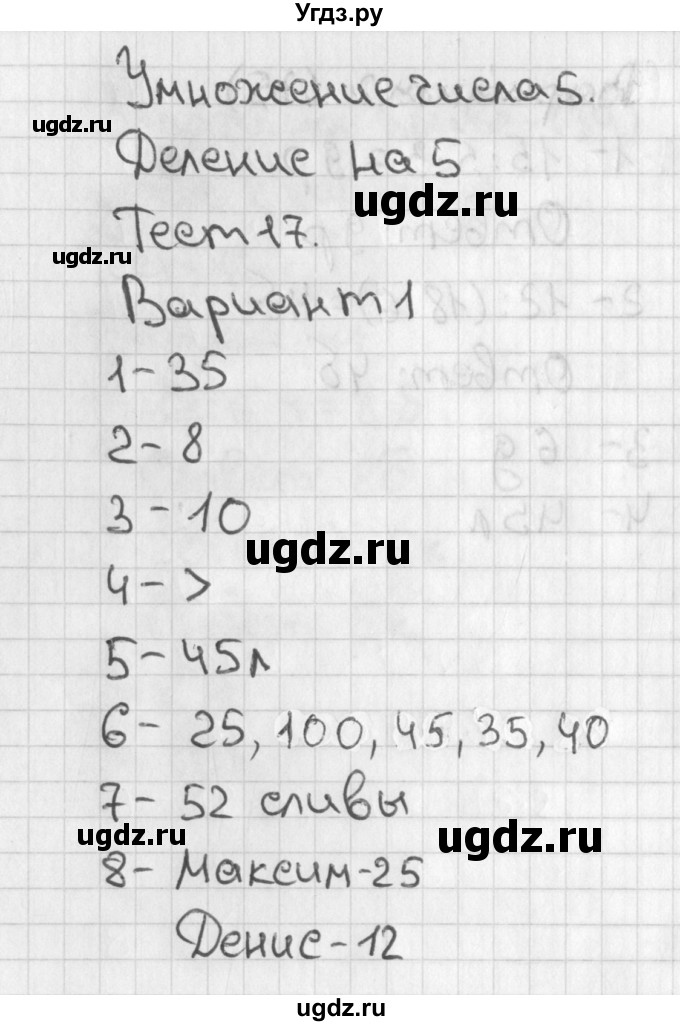 Угдз.ру
Умножение числа 5.
ugdz.ru
Деление на 5
ugdz.ru
Тест 17.
ugdz.ru
Вариант 1
1- 35
2- 8
3- 10
ugdz.ru
4- >
5- 45л
6- 25, 100, 45, 35, 40
7- 52 сливы
ugdz.ru
ugdz.ru
8- Максим-25
Денис-12
ugdz.ru